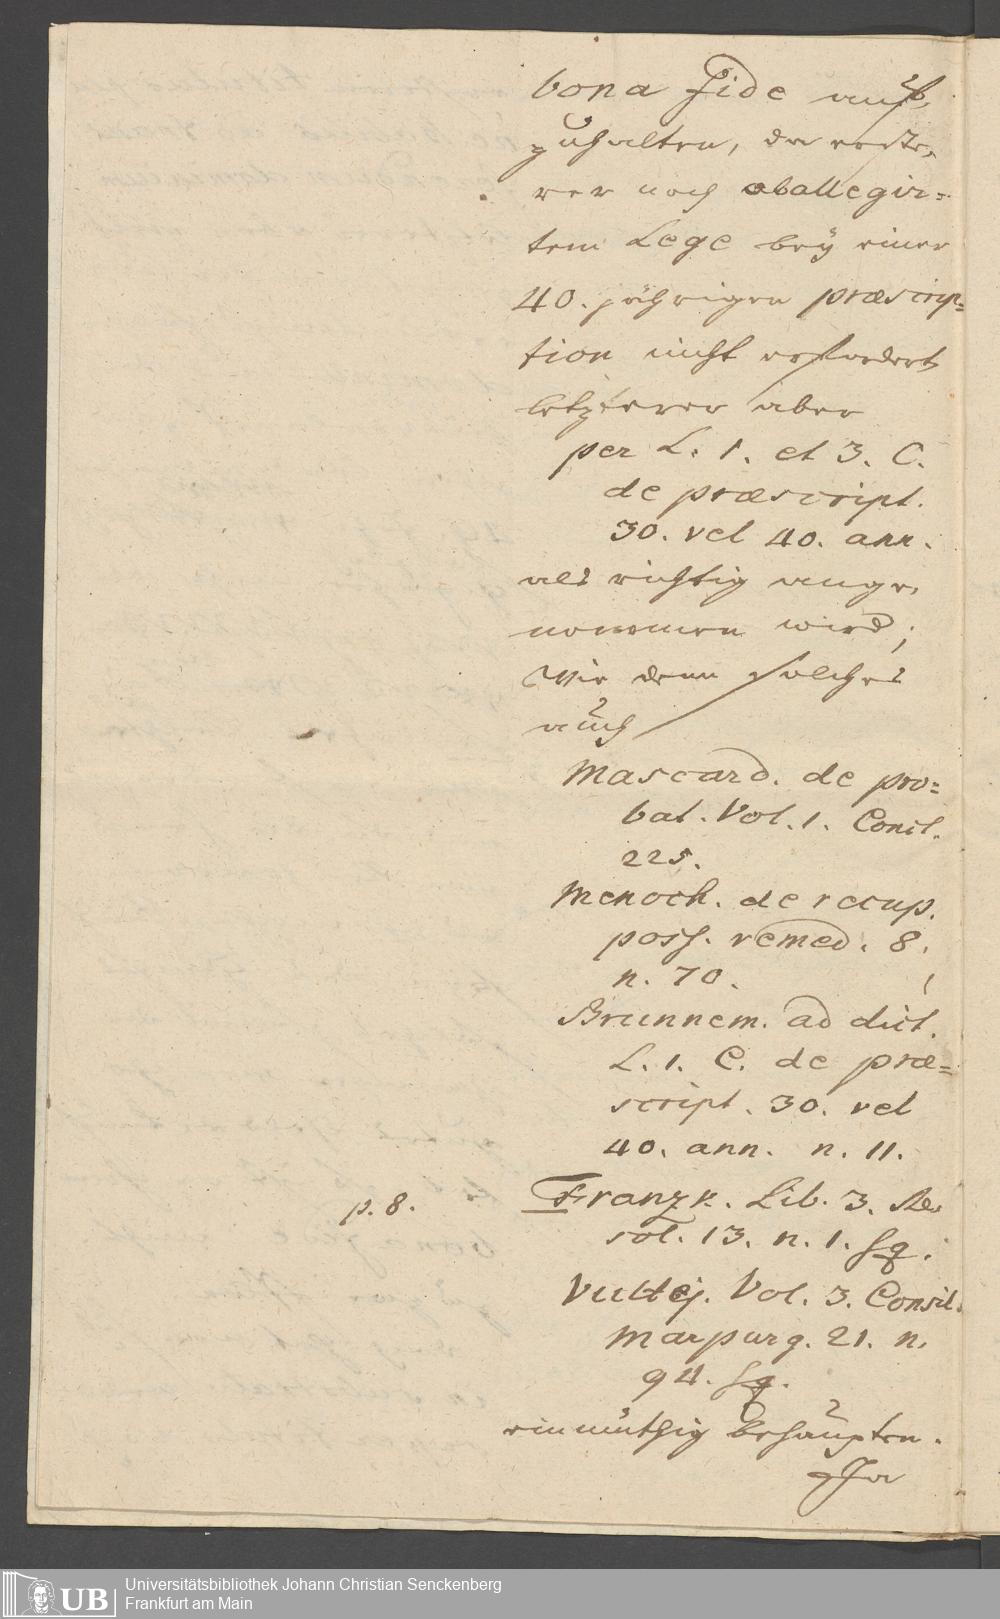 bona Fide auf,
zuhalten, da erste,
rer nach oballegir=
tem Lege beÿ einer
40. jährigen præscrip=
tion nicht erfordert,
letzterer aber
per L. 1. et 3. C.
de præscript.
30. vel 40. ann.
als richtig ange,
nommen wird;
Wie denn solches
auch
Mascard. de pro=
bat. Vol. 1. Concl.
225.
Menoch. de recup.
poss. remed. 8.
n. 70.
Brunnem. ad dict.
L. 1. C. de præ=
script. 30. vel
40. ann. n. 11.
p. 8.
Franzk. Lib. 3. Re
sol. 13. n. 1. sq.
Vultej. Vol. 3. Consil.
Marpurg. 21. n.
94. sq.
einmüthig behaupten.
Ja
Universitätsbibliothek Johann Christian Senckenberg
Frankfurt am Main
UB